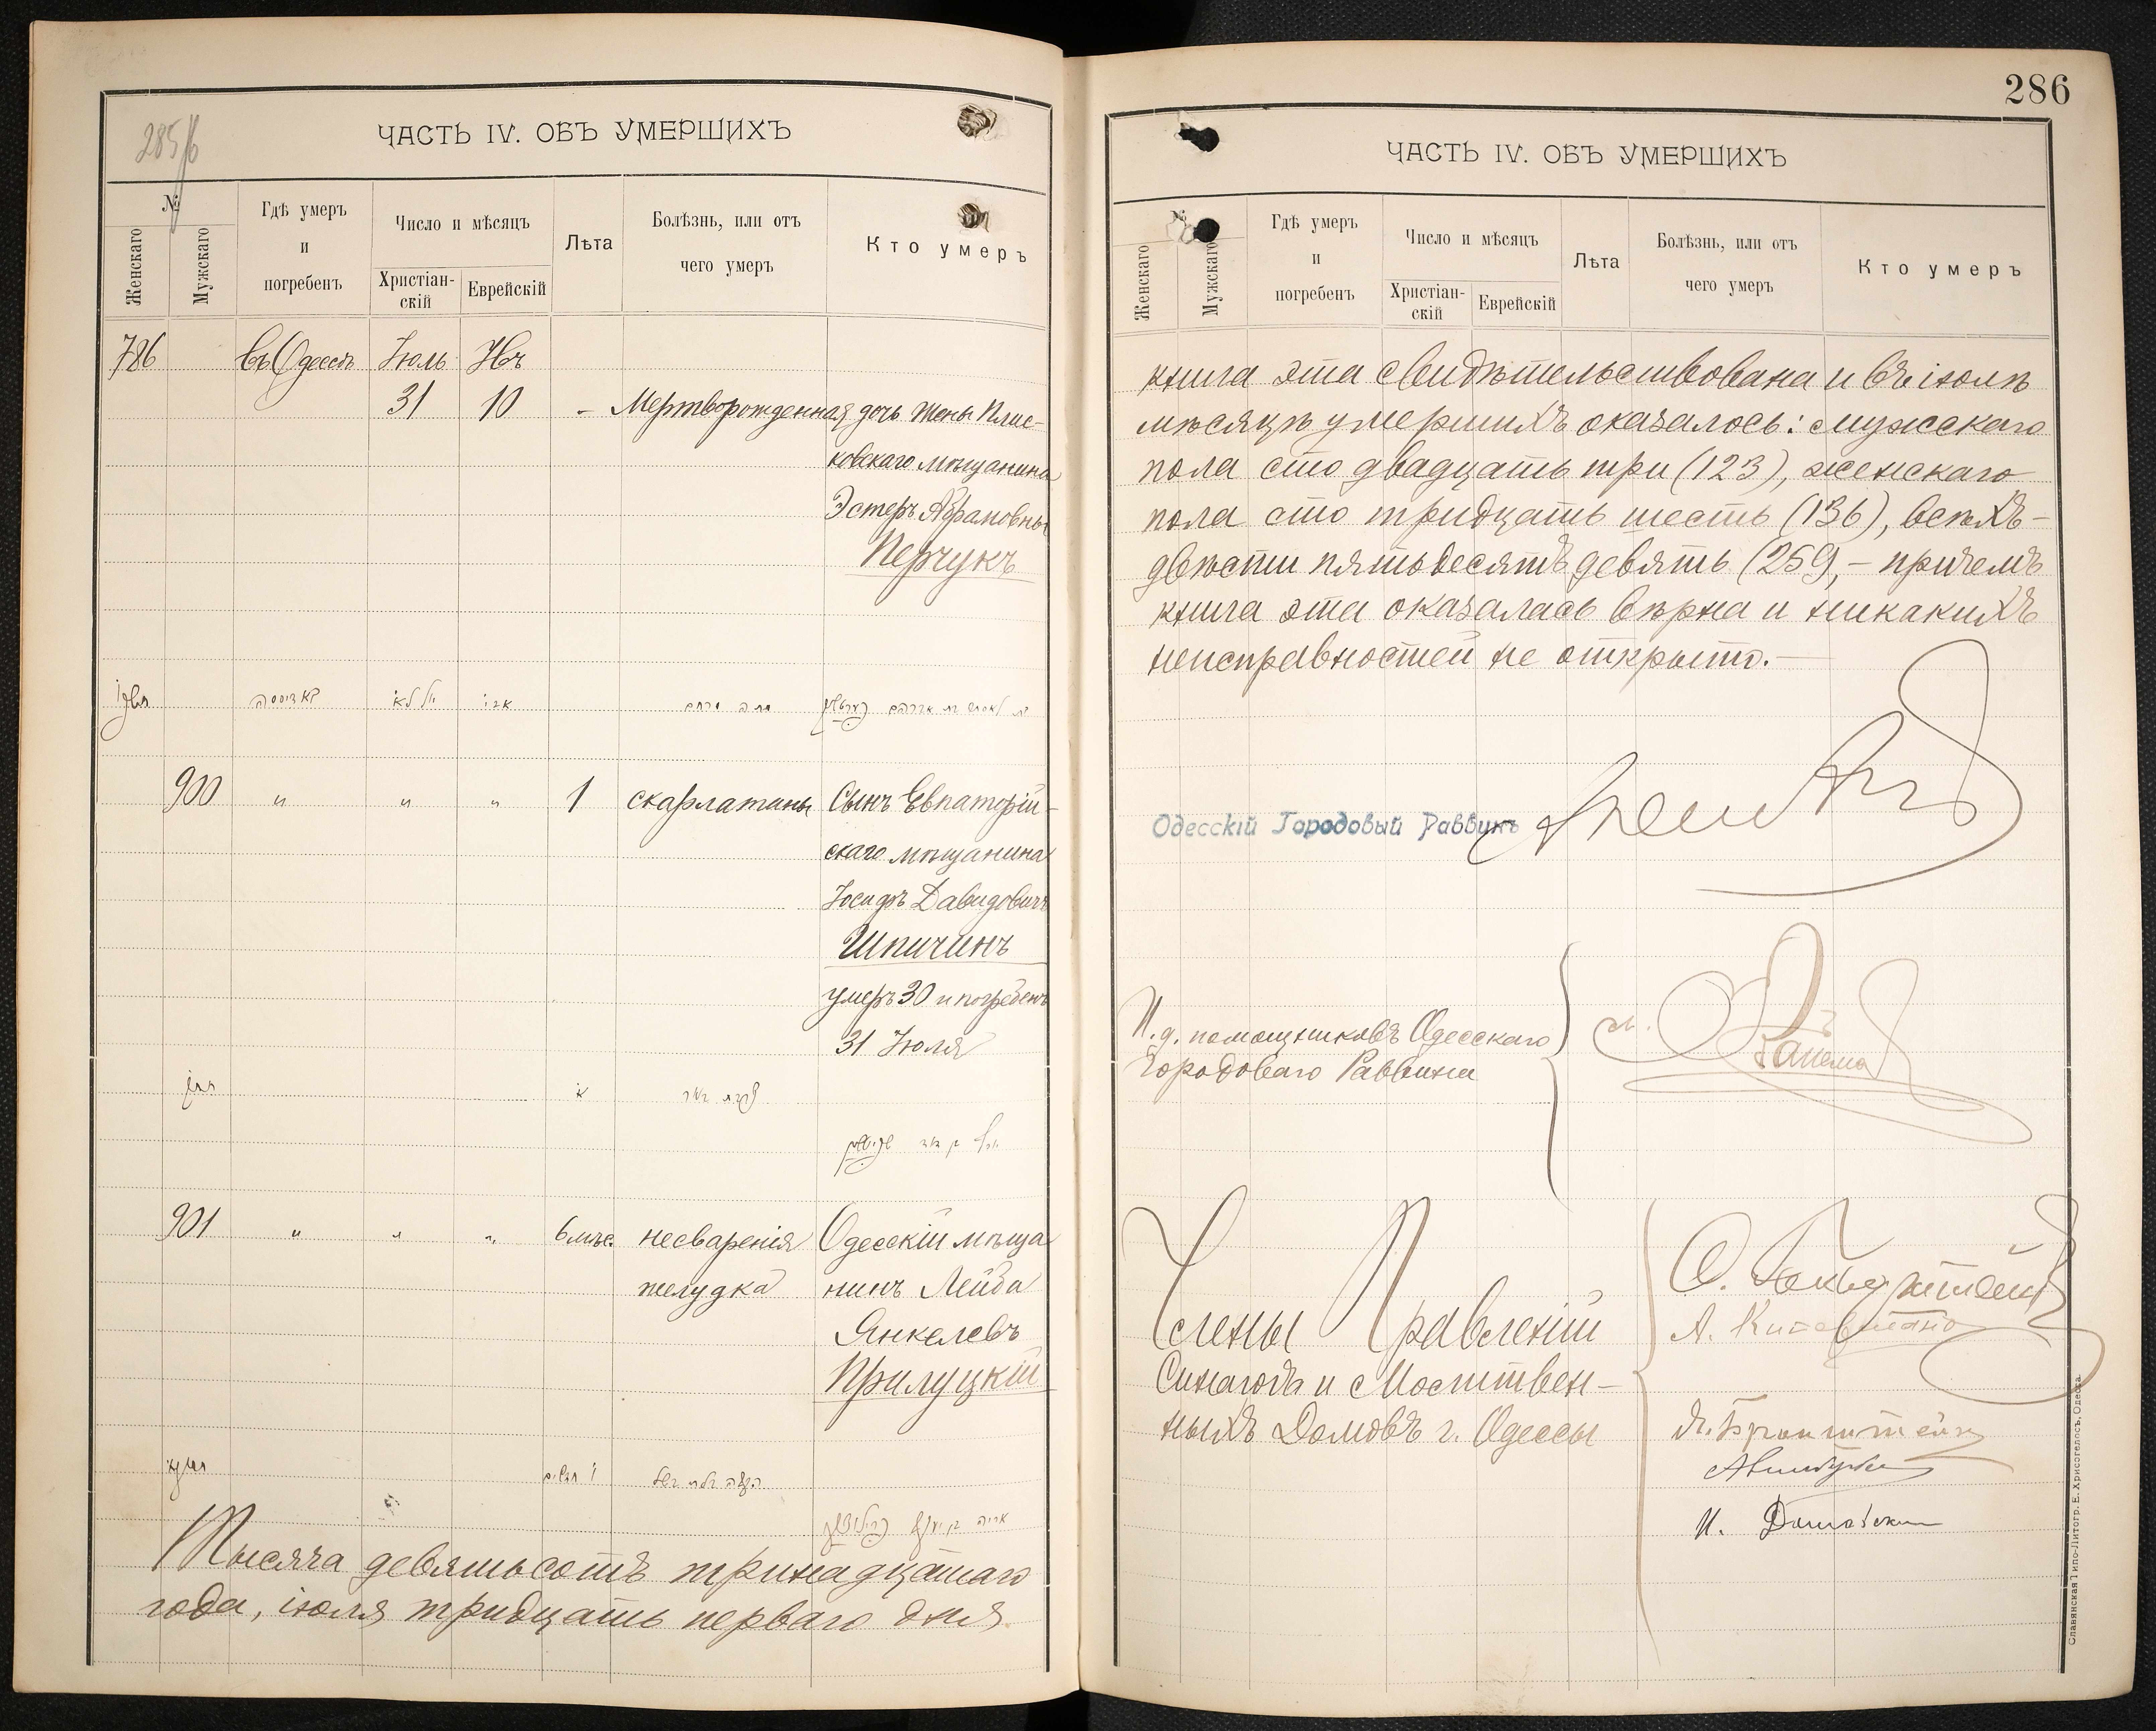 285 об
ЧАСТЬ IV. ОБЪ УМЕРШИХЪ
№
Женскаго
Мужскаго
Гдѣ умеръ
и
погребенъ
Число и мѣсяцъ
Христіан-
скій
Еврейскій
Лѣта
Болѣзнь, или отъ
чего умеръ
Кто умеръ
786 въ Одессѣ Іюль Авъ
31 10 – Мертворожденная дочь жены Плис-
ковскаго мѣщанина
Эстеръ Абрамовны
Перчукъ
900 " " " 1 скарлатины Сынъ Евпаторій-
скаго мѣщанина
Іосифъ Давидовичъ
Шпичинъ
умеръ 30 и погребенъ
31 Іюля
901 " " " 6 мѣс. несваренія Одесскій мѣща
желудка нинъ Лейба
Янкелевъ
Прилуцкій
Тысяча девятьсотъ тринадцатаго
года, іюля тридцать перваго дня
286
ЧАСТЬ IV. ОБЪ УМЕРШИХЪ
№
Женскаго
Мужскаго
Гдѣ умеръ
и
погребенъ
Число и мѣсяцъ
Христіан-
скій
Еврейскій
Лѣта
Болѣзнь, или отъ
чего умеръ
Кто умеръ
книга эта свидѣтельствована и въ іюлѣ
мѣсяцѣ умершихъ оказалось: мужскаго
пола сто двадцать три (123), женскаго
пола сто тридцать шесть (136), всѣхъ –
двѣсти пятьдесятъ девять (259, – причемъ
книга эта оказалась вѣрна и никакихъ
неисправностей не открыто. –
Одесскій Городовый Раввинъ
И. д. помощниковъ Одесскаго
Городоваго Раввина
Члены Правленій
Синагогъ и Молитвен-
ныхъ Домовъ г. Одессы
Бронштейн
Славянская Типо-Литогр. Е. Хрисогелосъ, Одесса.